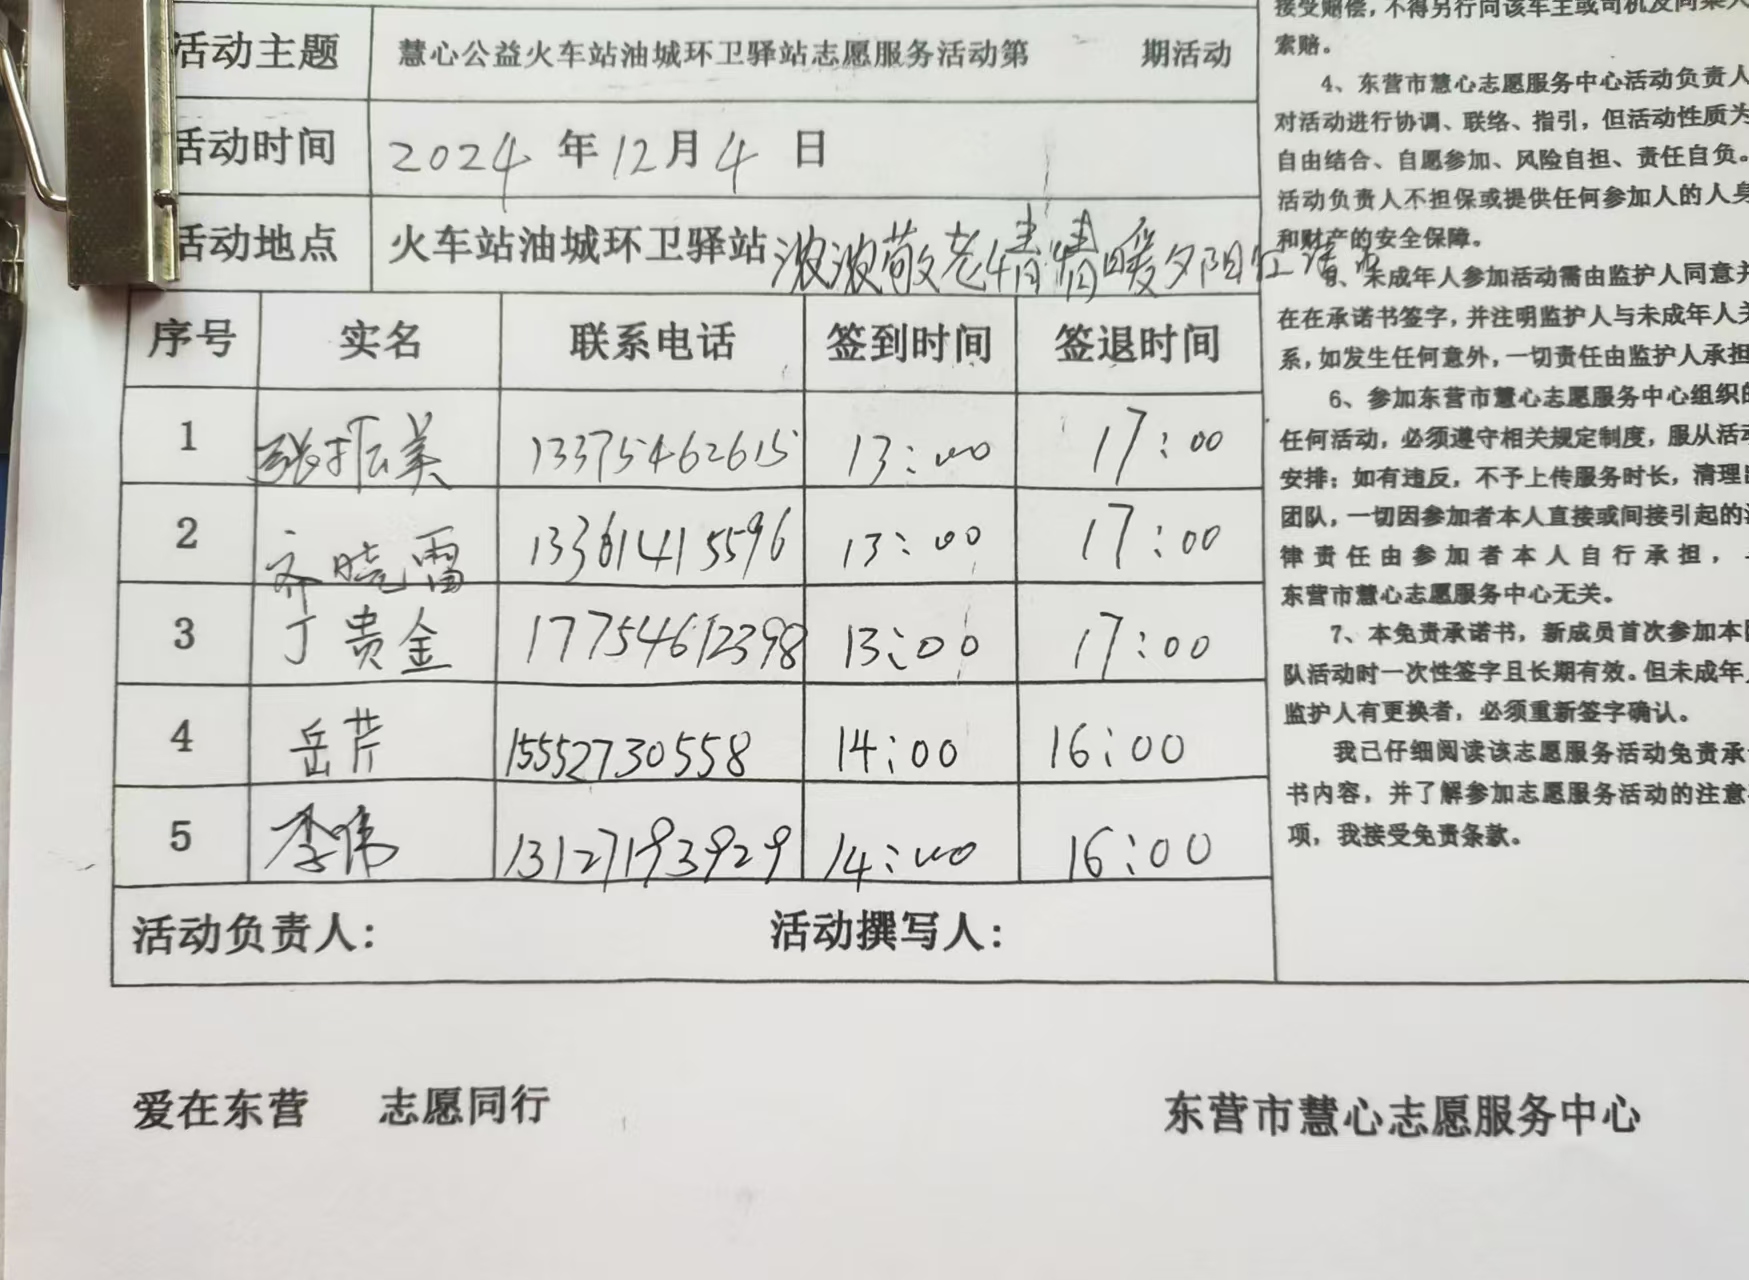 活动主题 慧心公益火车站油城环卫驿站志愿服务活动第 期活动
活动时间 2024年12月4日
活动地点 火车站油城环卫驿站 浓浓敬老情情暖夕阳红
序号 实名 联系电话 签到时间 签退时间
1 张振美 13375462615 13:00 17:00
2 齐晓雷 13361415596 13:00 17:00
3 丁贵金 17754612398 13:00 17:00
4 岳芹 15552730558 14:00 16:00
5 李伟 13127193929 14:00 16:00
活动负责人: 活动撰写人:
接受赔偿,不得另行向该车主或司机及同乘人
索赔。
4、东营市慧心志愿服务中心活动负责人
对活动进行协调、联络、指引,但活动性质为
自由结合、自愿参加、风险自担、责任自负。
活动负责人不担保或提供任何参加人的人身
和财产的安全保障。
、未成年人参加活动需由监护人同意并
在在承诺书签字,并注明监护人与未成年人关
系,如发生任何意外,一切责任由监护人承担
6、参加东营市慧心志愿服务中心组织的
任何活动,必须遵守相关规定制度,服从活动
安排;如有违反,不予上传服务时长,清理出
团队,一切因参加者本人直接或间接引起的法
律责任由参加者本人自行承担,
东营市慧心志愿服务中心无关。
7、本免责承诺书,新成员首次参加本团
队活动时一次性签字且长期有效。但未成年人
监护人有更换者,必须重新签字确认。
我已仔细阅读该志愿服务活动免责承诺
书内容,并了解参加志愿服务活动的注意事
项,我接受免责条款。
爱在东营 志愿同行
东营市慧心志愿服务中心